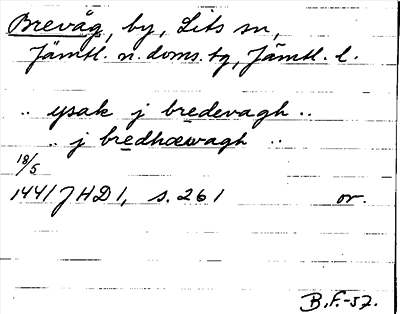 Brevåg, by, Lits sn,
Jämtl. n. doms. tg, Jämtl. l.
.. ysak j bredevagh ..
.. j bredhœwagh ..
18/5
1441 JHD 1, s. 261 or.
B.F.-57.